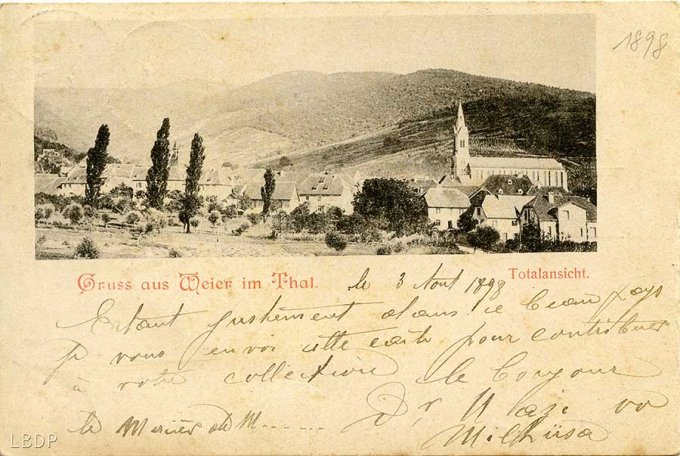 1898
Gruss aus Weier im Thal.
le 3 Aout 1898
Totalansicht.
Etant justement dans ce beau pays
je vous envoi cette carte pour contribuer
à votre collection le Bonjour
Dr
le Mercier de M......
LBDP